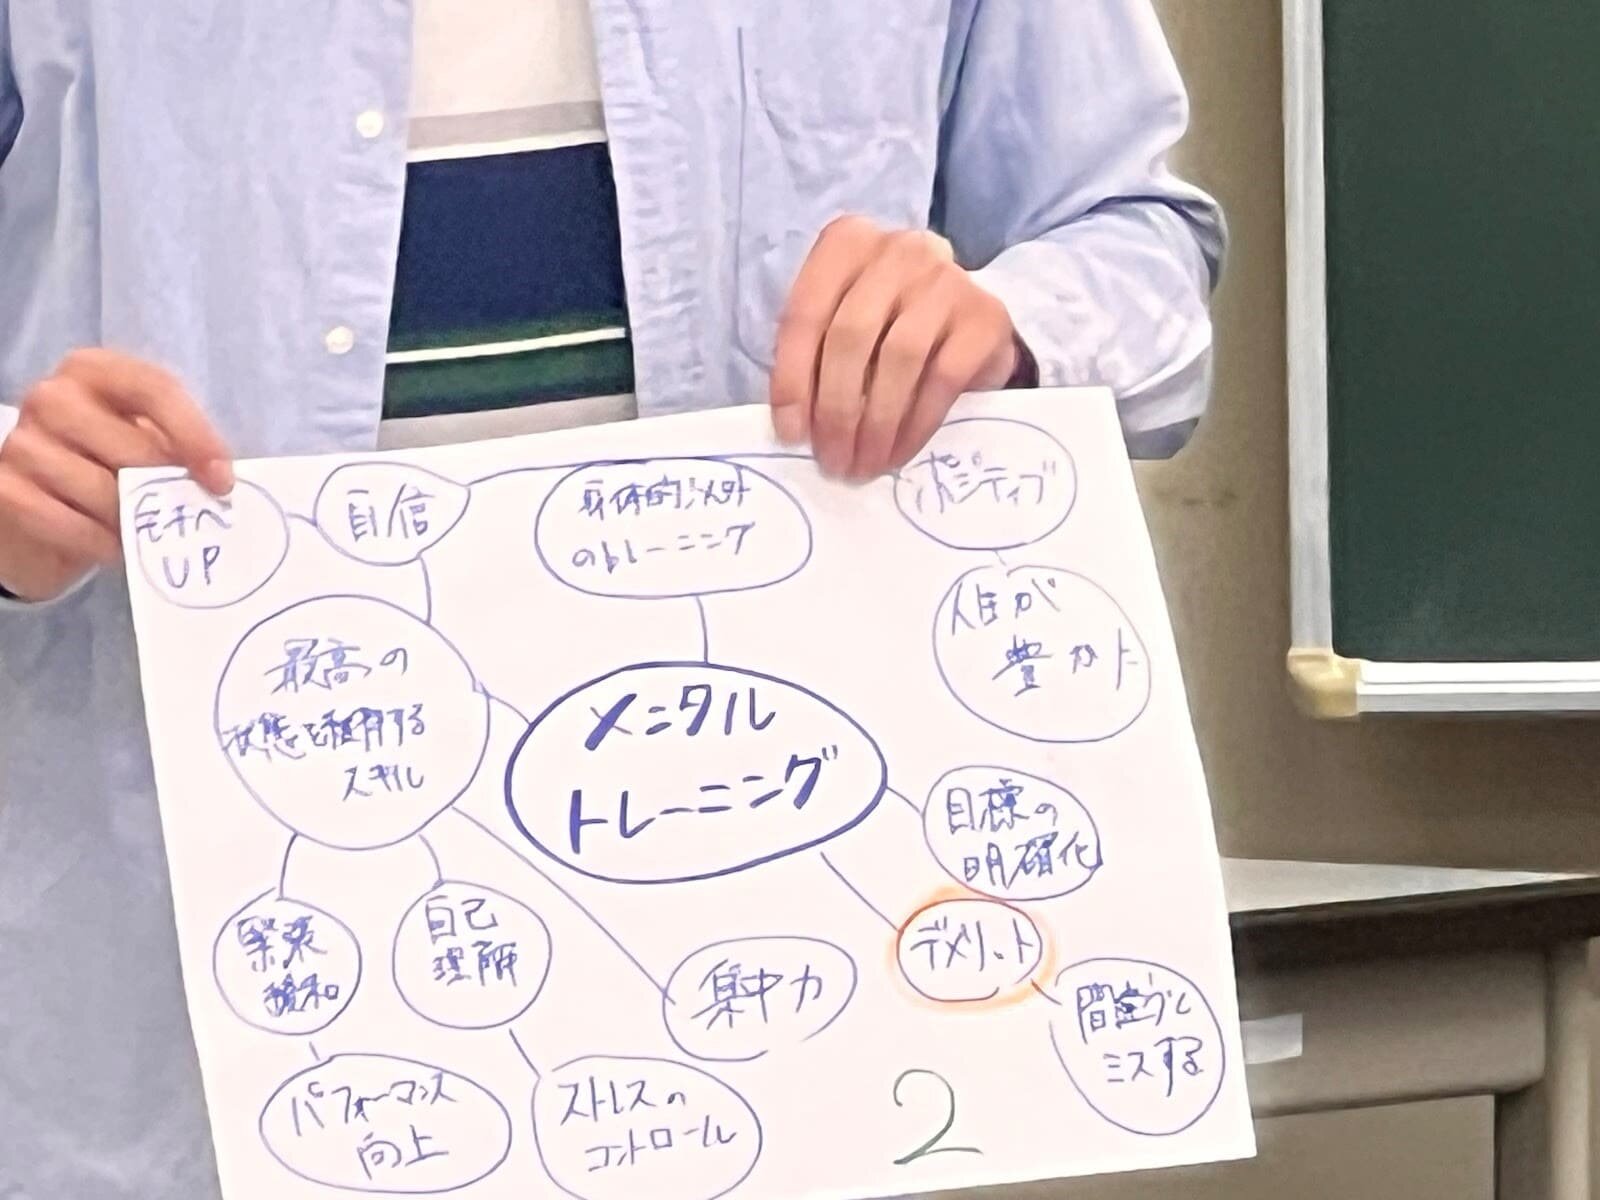 UP
自信
身体的以外
のトレーニング
ポジティブ
人生が
豊かに
最高の
状態を維持する
スキル
メンタル
トレーニング
目標の
明確化
デメリット
間違うと
ミスする
緊張
緩和
自己
理解
集中力
パフォーマンス
向上
ストレスの
コントロール
2